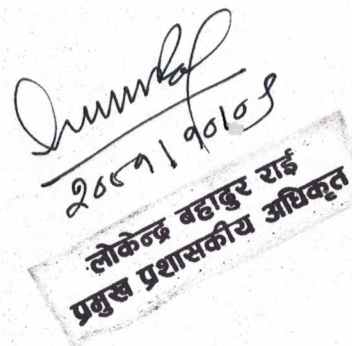 २०८१।१०।०९
लोकेन्द्र बहादुर राई
प्रमुख प्रशासकीय अधिकृत